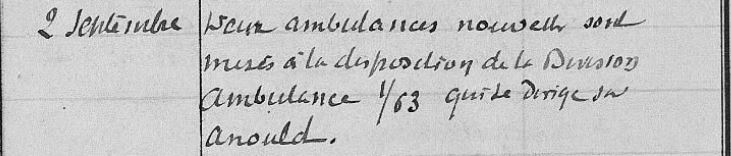 2 Septembre Deux ambulances nouvelles sont
mises à la disposition de la Division
Ambulance 1/63 qui se dirige sur
Anould.